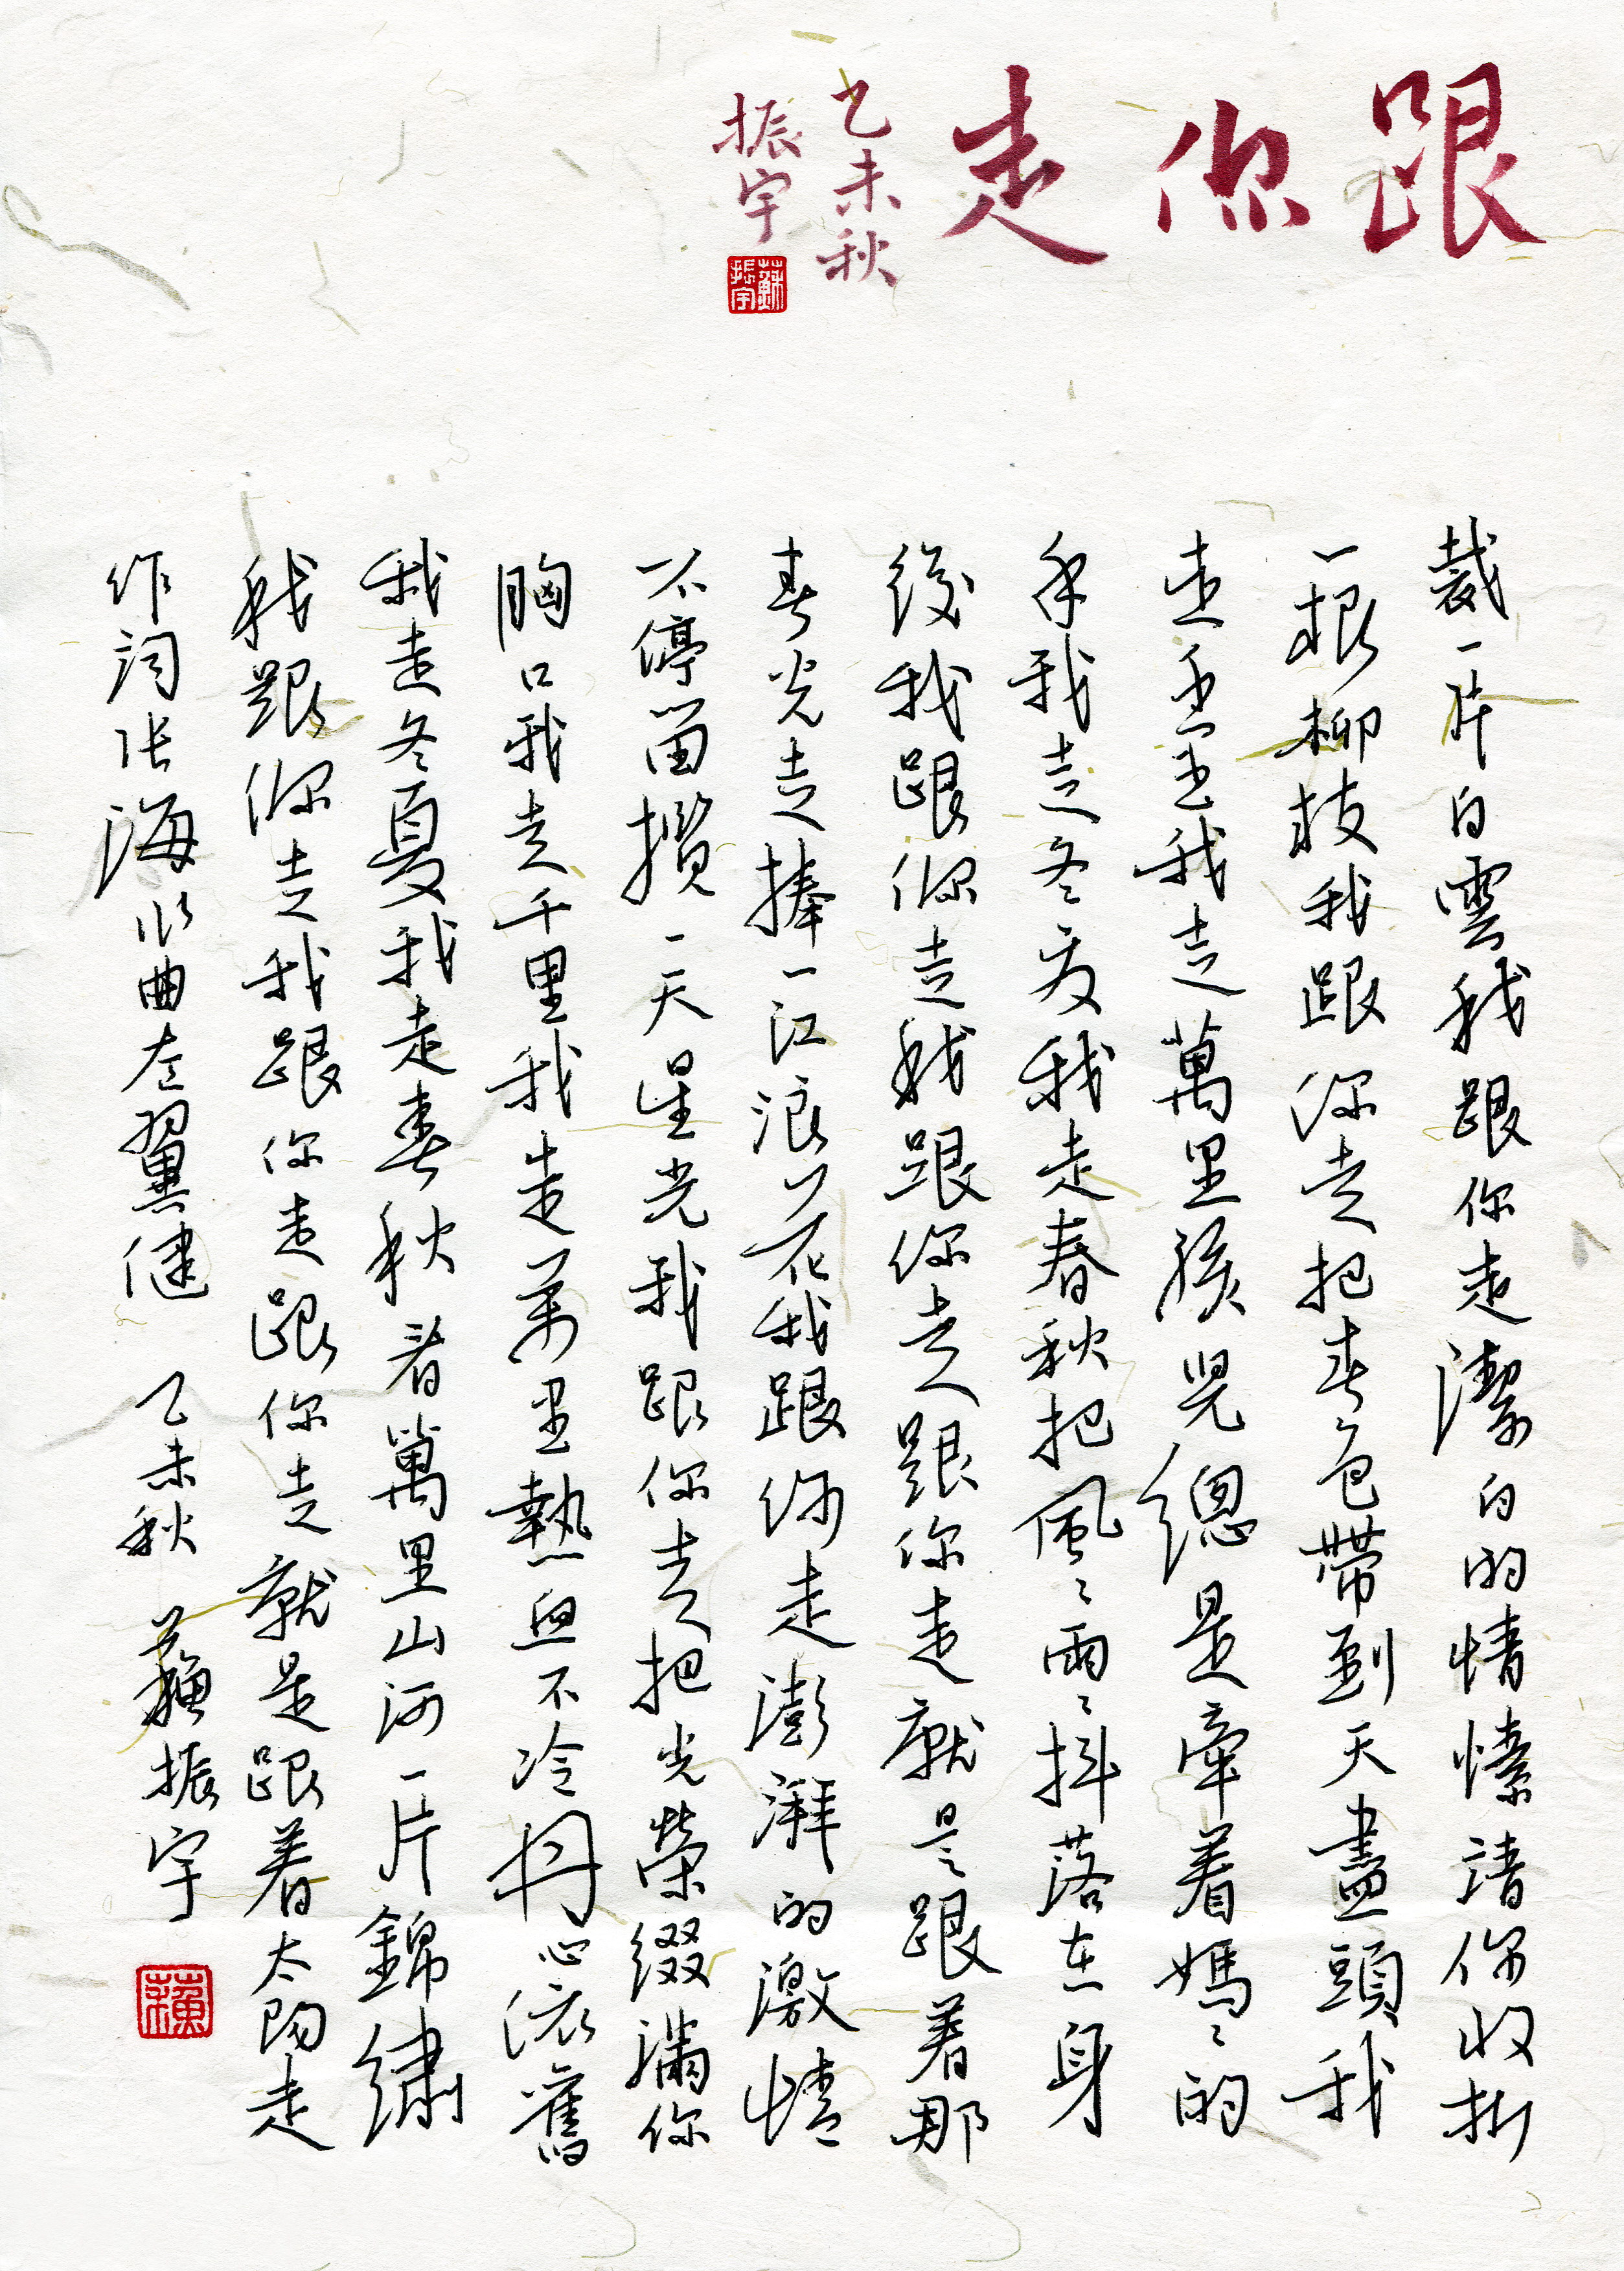 跟你走
乙未秋
振宇
蘇振宇
裁一片白雲我跟你走潔白的情愫請你收折
一根柳枝我跟你走把春色帶到天盡頭我
走千里我走萬里孩兒總是牽着媽〻的
手我走冬夏我走春秋把風〻雨〻抖落在身
後我跟你走我跟你走跟你走就是跟着那
春光走捧一江浪花我跟你走澎湃的激情
不停留攬一天星光我跟你走把光榮綴滿你
胸口我走千里我走萬里熱血不冷丹心依舊
我走冬夏我走春秋看萬里山河一片錦繡
我跟你走我跟你走跟你走就是跟着太陽走
作詞張海水曲左翼健 乙未秋 蘇振宇
蘇